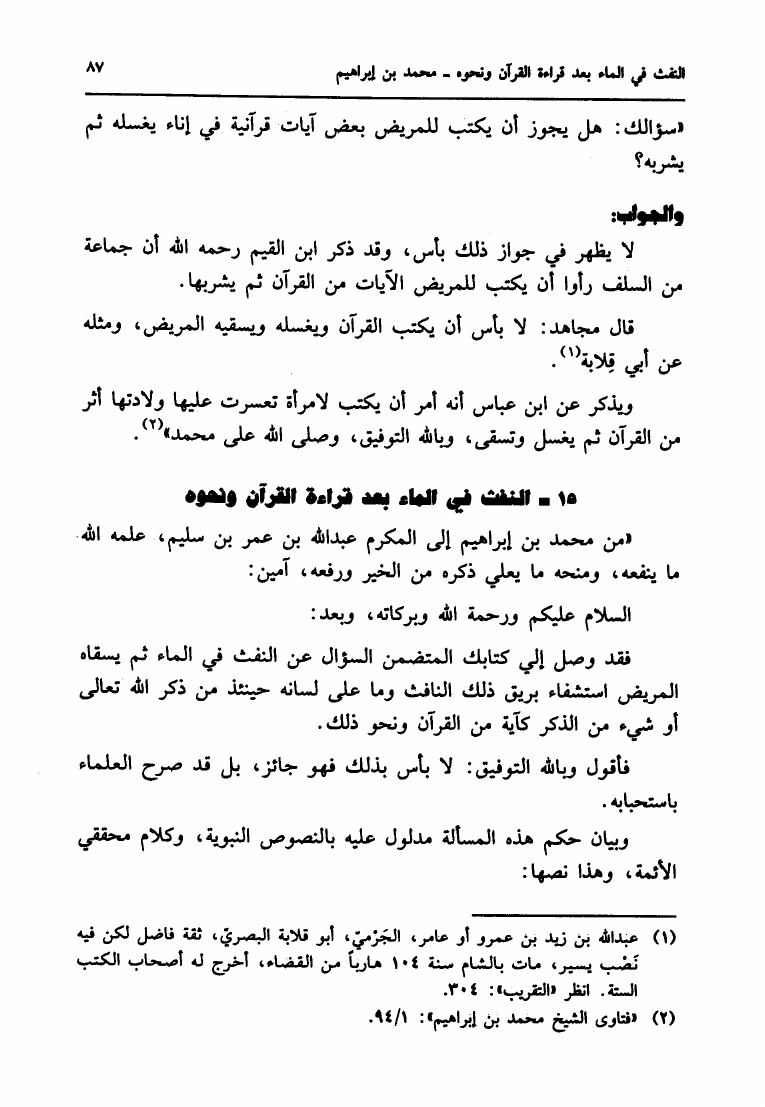 النفث في الماء بعد قراءة القرآن ونحوه ـ محمد بن إبراهيم ٨٧
«سؤالك: هل يجوز أن يكتب للمريض بعض آيات قرآنية في إناء يغسله ثم
يشربه؟
والجواب:
لا يظهر في جواز ذلك بأس، وقد ذكر ابن القيم رحمه الله أن جماعة
من السلف رأوا أن يكتب للمريض الآيات من القرآن ثم يشربها.
قال مجاهد: لا بأس أن يكتب القرآن ويغسله ويسقيه المريض، ومثله
عن أبي قِلابة(١).
ويذكر عن ابن عباس أنه أمر أن يكتب لامرأة تعسرت عليها ولادتها أثر
من القرآن ثم يغسل وتسقى، وبالله التوفيق، وصلى الله على محمد»(٢).
١٥ ـ النفث في الماء بعد قراءة القرآن ونحوه
«من محمد بن إبراهيم إلى المكرم عبدالله بن عمر بن سليم، علمه الله
ما ينفعه، ومنحه ما يعلي ذكره من الخير ورفعه، آمين:
السلام عليكم ورحمة الله وبركاته، وبعد:
فقد وصل إلي كتابك المتضمن السؤال عن النفث في الماء ثم يسقاه
المريض استشفاء بريق ذلك النافث وما على لسانه حينئذ من ذكر الله تعالى
أو شيء من الذكر كآية من القرآن ونحو ذلك.
فأقول وبالله التوفيق: لا بأس بذلك فهو جائز، بل قد صرح العلماء
باستحبابه.
وبيان حكم هذه المسألة مدلول عليه بالنصوص النبوية، وكلام محققي
الأئمة، وهذا نصها:
(١) عبدالله بن زيد بن عمرو أو عامر، الجَرْميّ، أبو قلابة البصريّ، ثقة فاضل لكن فيه
نَصْب يسير، مات بالشام سنة ١٠٤ هارباً من القضاء، أخرج له أصحاب الكتب
الستة. انظر «التقريب»: ٣٠٤.
(٢) «فتاوى الشيخ محمد بن إبراهيم»: ٩٤/١.